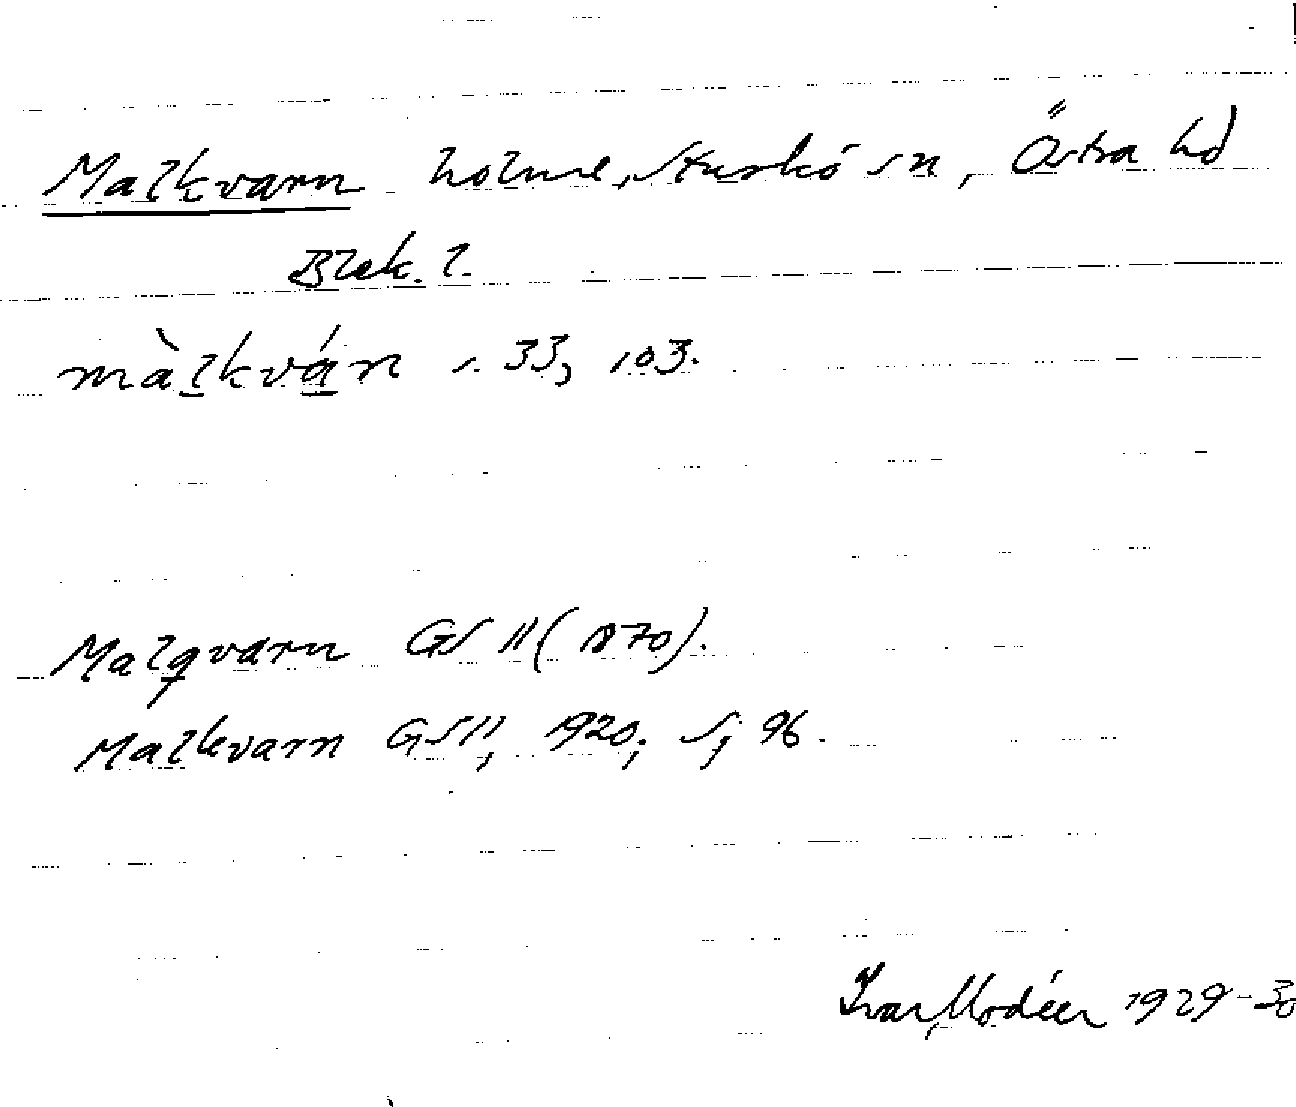 Malkvarn holme, Sturkö sn, Östra hd
Blek. l.
màlkván s. 33, 103.
Malqvarn GS II (1870).
Malkvarn GS II, 1920; S, 96.
Ivar Modéer 1929-30